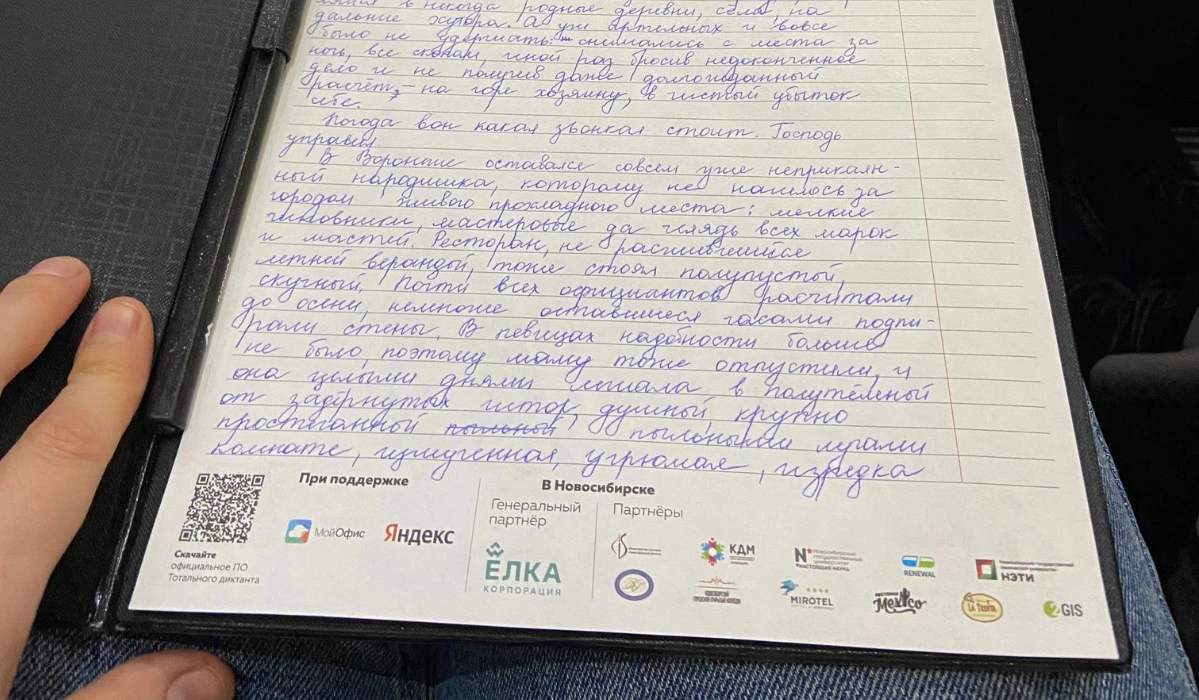 в некогда родные деревни, сёла, на
дальние хутора. А уж артельных и вовсе
было не удержать: снимались с места за
ночь, все скопом, иной раз бросив недоконченное
дело и не получив даже долгожданный
расчёт, – на горе хозяину, в чистый убыток
себе.
Погода вон какая звонкая стоит. Господь
управил
В Воронеже остался совсем уже неприкаян-
ный народишка, которому не нашлось за
городом живого прохладного места: мелкие
чиновники, мастеровые да голядь всех марок
и мастей. Ресторан, не расщедрившийся
летней верандой, тоже стоял полупустой,
скучный. Почти всех официантов рассчитали
до осени, немногие оставшиеся часами подпи-
рали стены. В певицах надобности больше
не было, поэтому маму тоже отпустили, и
она целыми днями лежала в полутёмной
от задёрнутых штор, душной, крупно
простёганной пыльный пыльными лучами
комнате, измученная, угрюмая, изредка
При поддержке
МойОфис
Яндекс
Скачайте
официальное ПО
Тотального диктанта
В Новосибирске
Генеральный
партнёр
ЁЛКА
КОРПОРАЦИЯ
Партнёры
КДМ
N*
Новосибирский
государственный
университет
*НАСТОЯЩАЯ НАУКА
RENEWAL
НЭТИ
MIROTEL
Mexico
2GIS